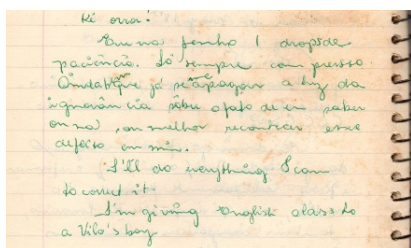 Ki orra!
Eu não tenho 1 drops de
paciência. Só sempre com pressa.
já se apagou a luz da
ignorância sôbre o fato de eu saber
ou não, ou melhor reconhecer esse
defeito em mim.
I'll do everything I can
to correct it.
I'm giving English class to
a Vilo's boy